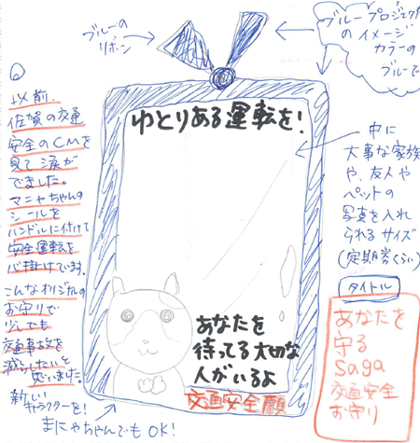 ブルーの
リボン
ブループロジェクト
のイメージ
カラーの
ブルーで
以前、
佐賀の交通
安全のCMを
見て涙が
でました。
マニャちゃんの
シールを
ハンドルに付けて
安全運転を
心掛けています。
こんなオリジナルの
お守りで
少しでも
交通事故を
減らしたいと
思いました。
新しい
キャラクターを!
まにゃちゃんでもOK!
ゆとりある運転を!
あなたを
待ってる大切な
人がいるよ
交通安全願
中に
大事な家族
や、友人や
ペットの
写真を入れ
られるサイズ
(定期券くらい)
タイトル
あなたを
守る
saga
交通安全
お守り